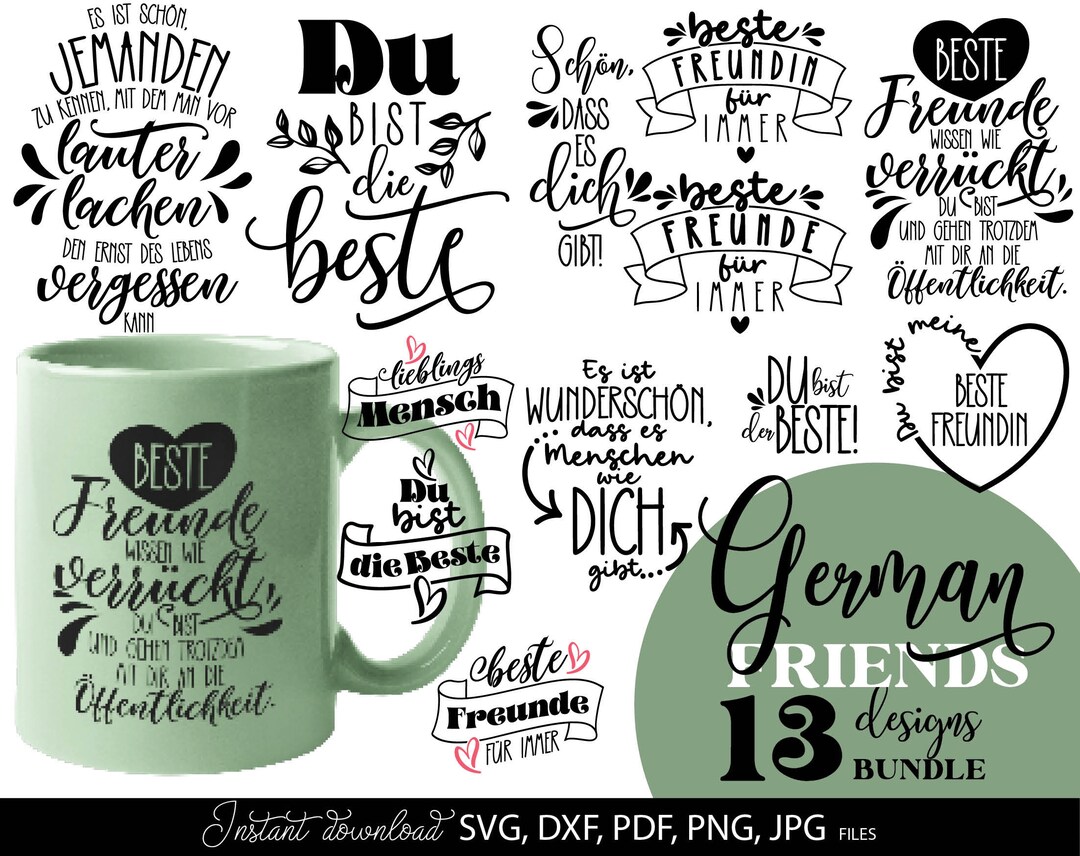 ES IST SCHÖN,
JEMANDEN
ZU KENNEN, MIT DEM MAN VOR
lauter
lachen
DEN ERNST DES LEBENS
vergessen
KANN
Du
BIST
die
beste
Schön,
DASS
ES
dich
GIBT!
beste
FREUNDIN
für
IMMER
beste
FREUNDE
für
IMMER
BESTE
Freunde
WISSEN WIE
verrückt
DU BIST
UND GEHEN TROTZDEM
MIT DIR AN DIE
Öffentlichkeit.
BESTE
Freunde
WISSEN WIE
verrückt
DU BIST
UND GEHEN TROTZDEM
MIT DIR AN DIE
Öffentlichkeit.
lieblings
Mensch
Du
bist
die Beste
beste
Freunde
FÜR IMMER
Es ist
WUNDERSCHÖN,
dass es
...Menschen
wie
DICH
gibt...
DU bist
der BESTE!
Du bist meine
BESTE
FREUNDIN
German
FRIENDS
13 designs
BUNDLE
Instant download SVG, DXF, PDF, PNG, JPG FILES